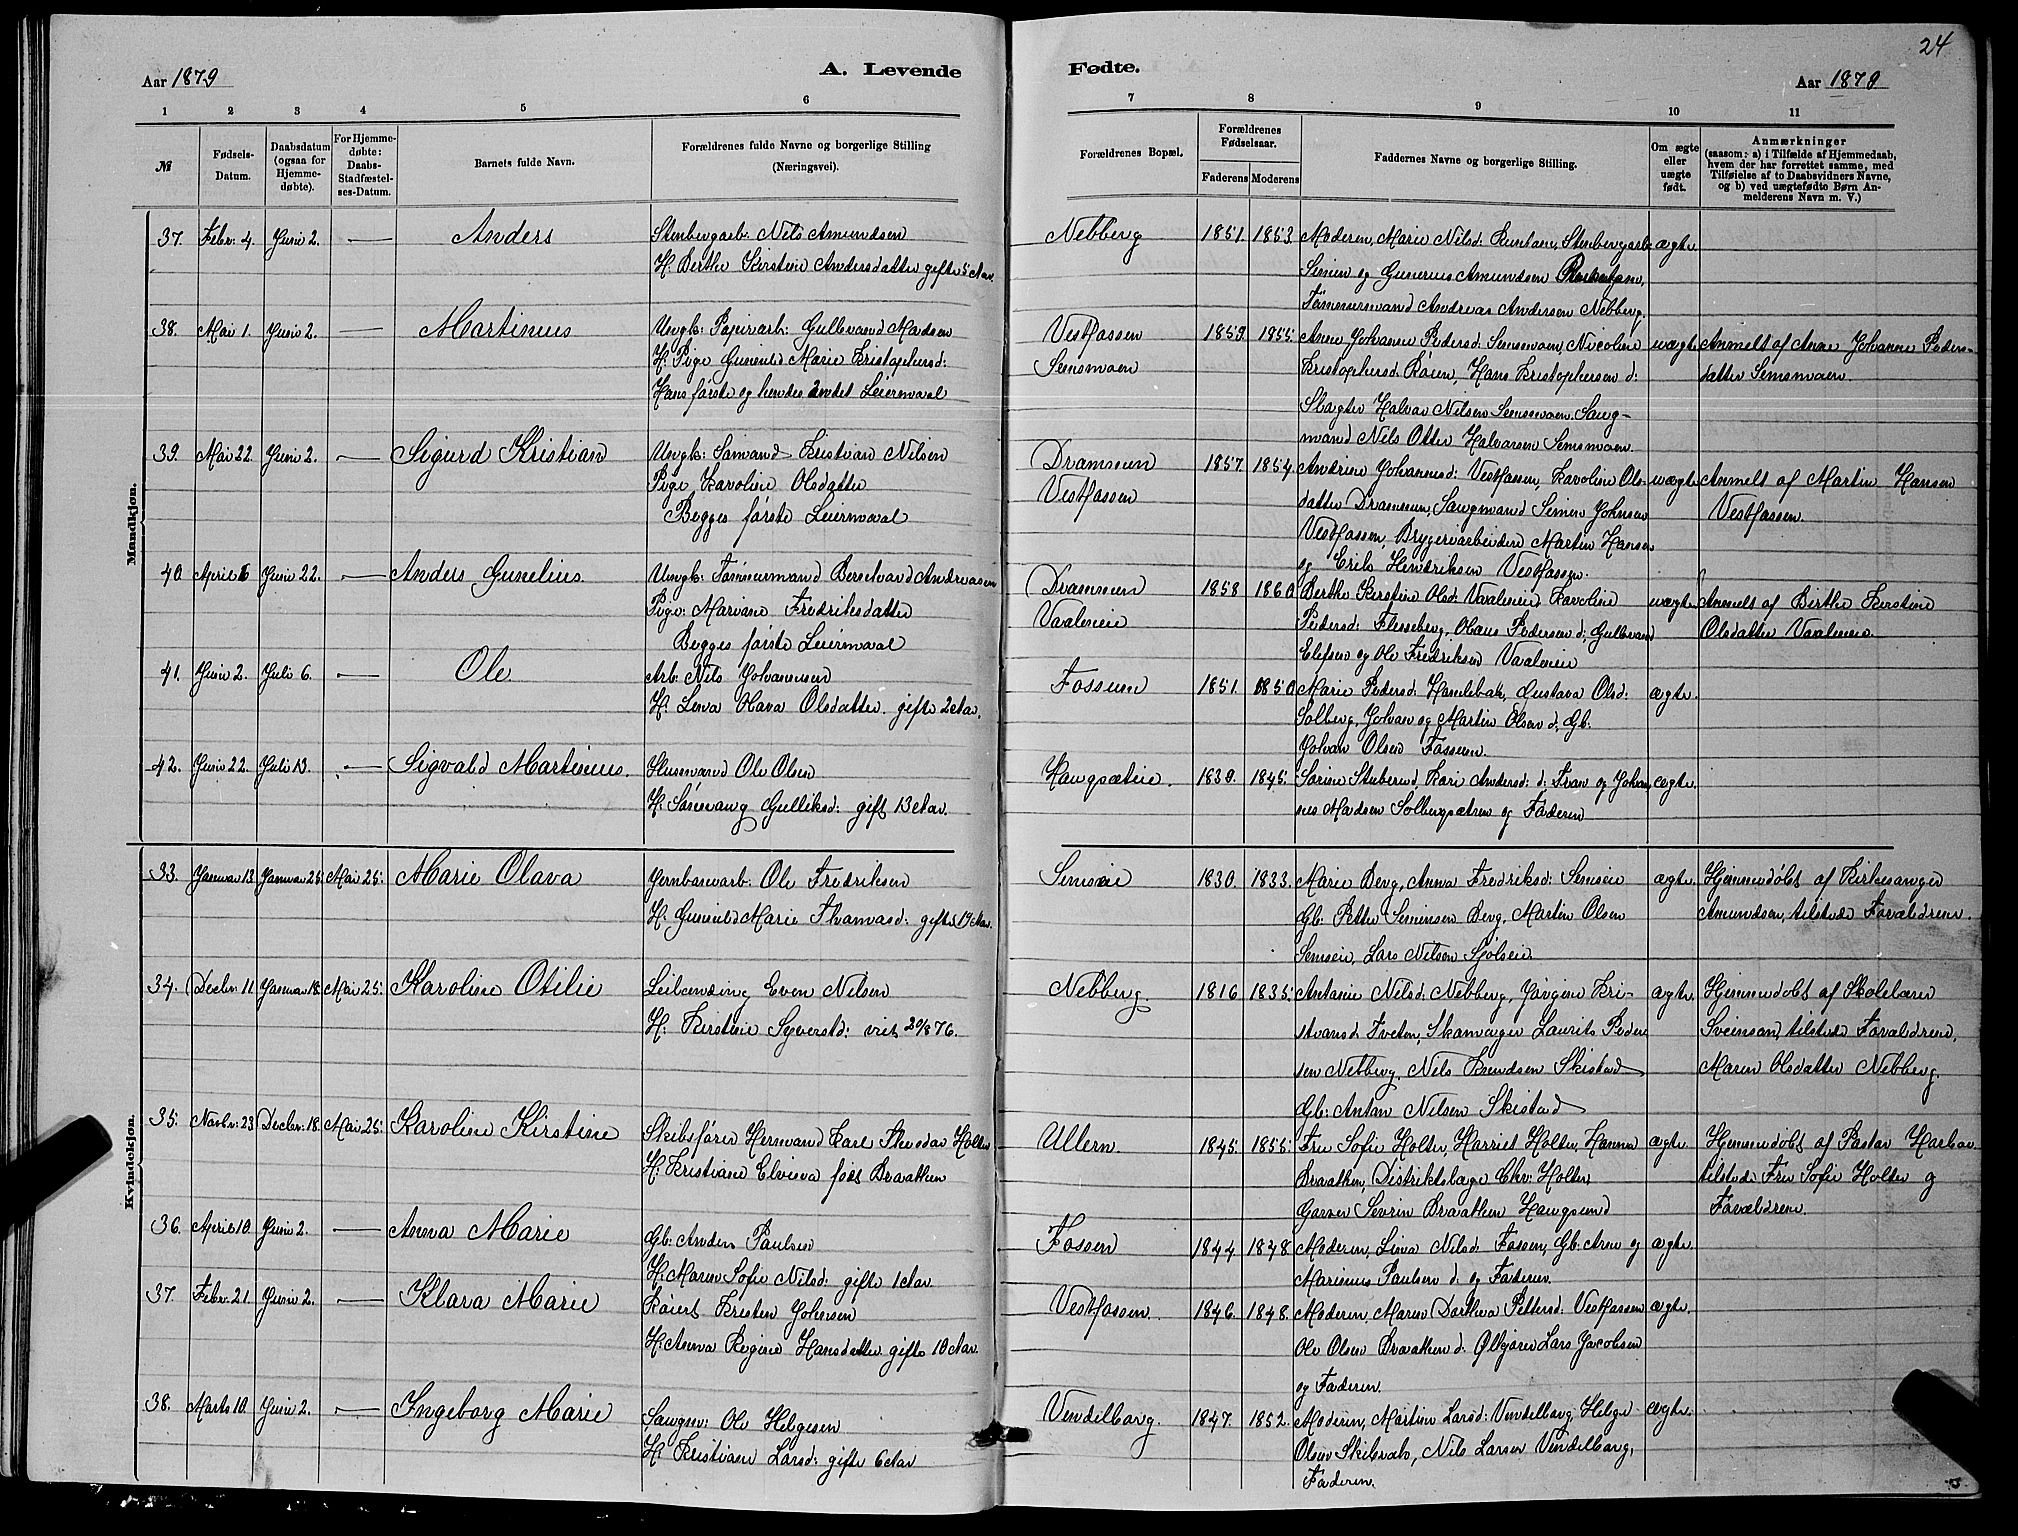 24
Aar 1879
A. Levende
Fødte.
Aar 1879
1 2 3 4 5 6 7 8 9 10 11
№
Fødsels-
Datum.
Daabsdatum
(ogsaa for
Hjemme-
døbte).
For Hjemme-
døbte:
Daabs-
Stadfæstel-
ses-Datum.
Barnets fulde Navn.
Forældrenes fulde Navne og borgerlige Stilling
(Næringsvei).
Forældrenes Bopæl.
Forældrenes
Fødselsaar.
Faderens Moderens
Faddernes Navne og borgerlige Stilling.
Om ægte
eller
uægte
født.
Anmærkninger
(saasom: a) i Tilfælde af Hjemmedaab,
hvem der har forrettet samme, med
Tilføielse af to Daabsvidners Navne,
og b) ved uægtefødte Børn An-
melderens Navn m. V.)
Mandkjøn.
37. Febr. 4. Juni 2. — Anders
Stenbergarb: Nils Amundsen
H. Berthe Kirstine Andersdatter gifte 5 Aar.
Nebberg 1851. 1853.
Moderen, Marie Nilsd: Stenbergarb:
Simen og Gunerius Amundsen
Tømmermand Andreas Andersen Nebberg.
ægte
38. Mai 1. Juni 2. — Martinius
Ungk: Papirarb: Gulbrand Madsen
H. Pige Gunild Marie Kristophersd:
Hans første og hendes andet Leiermaal
Vestfossen
Semsmoen
1859. 1855.
Anne Johanne Pedersd: Semsmoen, Nicoline
Kristophersd: Røien, Hans Kristophersen d:
Slagter Halvor Nilsen Semsmoen. Saug-
mand Nils Otter Halvorsen Semsmoen.
uægte
Anmelt af Anne Johanne Peders-
datter Semsmoen.
39. Mai 22. Juni 2. — Sigurd Kristian
Ungk: Sømand Kristian Nilsen
Pige Karoline Olsdatter
Begges første Leiermaal
Drammen
Vestfossen
1857. 1854.
Andrine Johannesd: Vestfossen, Karoline Ols-
datter Drammen, Saugmand Simen Johnsen
Vestfossen, Bryggeriarbeidere Martin Hansen
og Erik Hendriksen Vestfossen.
uægte
Anmelt af Martin Hansen
Vestfossen.
40. April 6 Juni 22. — Anders Gunelius.
Ungk: Tømmermand Berntvand Andreasen
Pige: Mariane Fredriksdatter
Begges første Leiermaal
Drammen
Vaalneie
1858 1860
Berthe Kirstine Olsd: Vaalneie, Karoline
Pedersd: Flesseberg, Olaus Pedersen d: Gulbrand
Elefsen og Ole Fredriksen Vaalneie
uægte
Anmelt af Berthe Kirstine
Olsdatter Vaalneie.
41. Juni 2. Juli 6. — Ole
Arb: Nils Johannesen
H. Lina Olava Olsdatter. gifte 2 Aar.
Fossum 1851. 1850
Marie Pedersd: Hamlebak, Gustava Olsd:
Solberg, Johan og Martin Olsen d: Gb:
Johan Olsen Fossum.
ægte.
42. Juni 22. Juli 13. — Sigvald Martinius.
Husmand Ole Olsen
H. Sørinaug Gulliksd: gift 13 Aar.
Haugsæteie. 1839. 1845.
Sørine Stuberud, Kari Andersd: d: Fran og Johan-
nes Madsen Solbergsætren og Faderen
ægte.
Kvindekjøn.
33. Januar 13. Januar 25. Mai 25. Marie Olava
Jernbanearb: Ole Fredriksen
H. Gunild Marie Thomasd: gifte 19 Aar.
Semseie 1830. 1833.
Marie Berg, Anna Fredriksd: Semseie
Gb: Petter Simensen Berg, Martin Olsen
Semseie, Lars Nilsen Sjølseie.
ægte.
Hjemmedøbt af Kirkesanger
Amundsen, tilstede Forældrene.
34. Decbr. 11. Januar 18. Mai 25. Karoline Otilie
Leilending Even Nilsen
H. Kirstine Syverstd: viet 29/876.
Nebberg. 1816 1835.
Antonie Nilsd: Nebberg, Jørgine Kri-
stiansd: Tveten, Skomager Laurits Peder-
sen Nebberg, Nils Knudsen Skistad
Gb: Anton Nilsen Skistad
ægte.
Hjemmedøbt af Skolelærer
Svensen, tilstede Forældrene,
Maren Olsdatter Nebberg.
35. Novbr. 23 Decbr. 18. Mai 25. Karoline Kirstine
Skibsfører Hermand Karl Theodor Holter
H. Kristiane Elvina født Braathen
Ullern. 1845. 1855.
Fru Sofie Holter, Harriet Holter, Hanna
Braathen, Distriktslæge Chr: Holter
Garver Severin Braathen Haugsund
ægte
Hjemmedøbt af Pastor Harboe
tilstede Fru Sofie Holter og
Forældrene.
36. April 10. Juni 2. — Anna Marie
Gb: Anders Paulsen
H. Maren Sofie Nilsd: gifte 1 Aar.
Fossen 1844 1848
Moderen, Lina Nilsd: Fossen, Gb: Arne og
Marinus Paulsen d: og Faderen.
ægte.
37. Febr. 21. Juni 2. — Klara Marie
Røiert Kristen Johnsen
H. Anna Regine Hansdatter gifte 10 Aar.
Vestfossen. 1846. 1848.
Moderen, Maren Dorthea Pettersd: Vestfossen
Ole Olsen Braathen d: Ølkjører Lars Jacobsen
og Faderen.
ægte.
38. Marts 10. Juni 2. — Ingeborg Marie
Saugm: Ole Helgesen
H. Kristiane Larsd: gifte 6 Aar
Vendelborg. 1847. 1852.
Moderen, Martine Larsd: Vendelborg, Helge
Olsen Skilsvalv, Nils Larsen Vendelborg,
Faderen.
ægte.